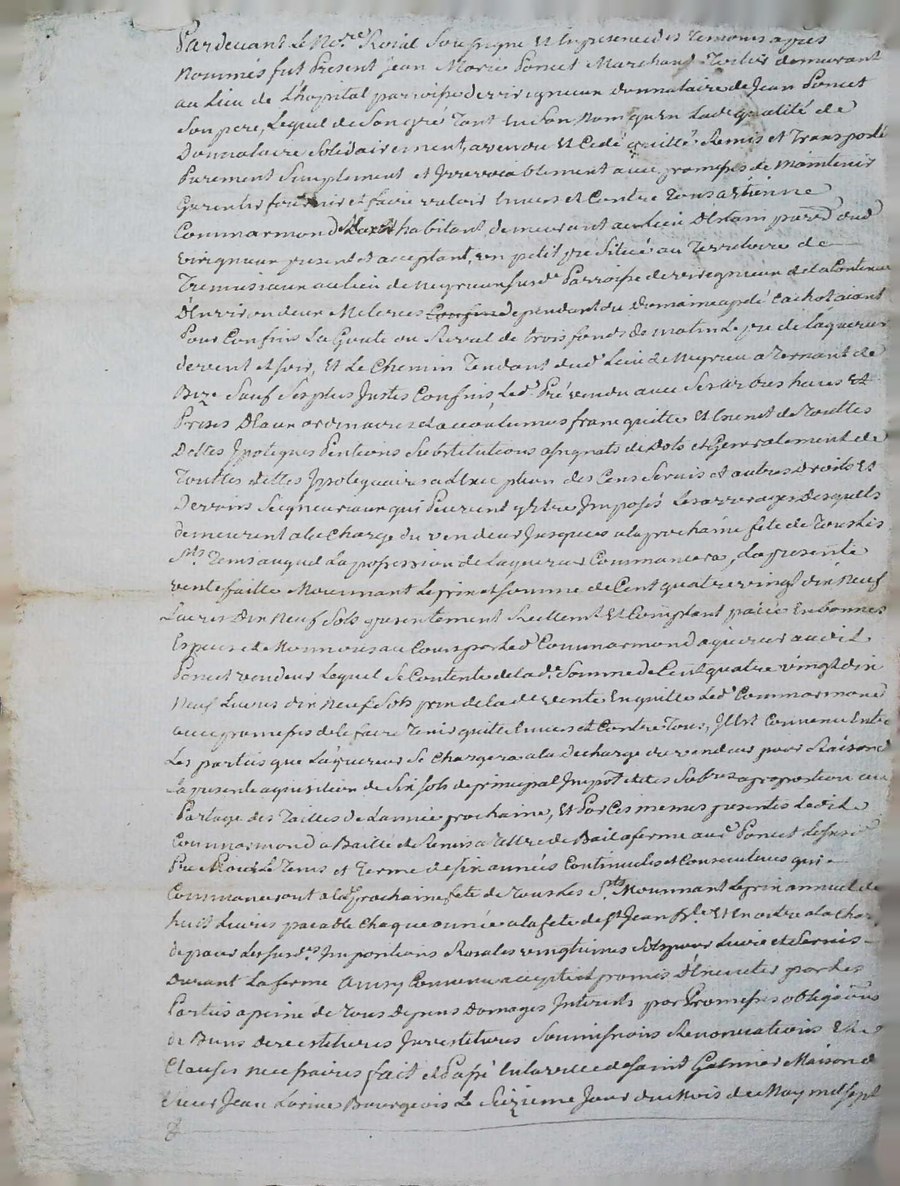 Pardevant le No.re Roial Soussigné et En presence des temoins apres
Nommés fut Present Jean Marie Poncet Marchand demeurant
au Lieu de L'hopital parroisse de virigneux donnataire de Jean Poncet
Son pere, Lequel de Son gré Tant En Son Nom qu'En Lad.e qualité de
Donnataire Solidairement, a vendu Et Cedé quitté Remis et Transporté
Purement Simplement et Irrevocablement avec promesse de maintenir
Garentir fournir et faire valoir Envers et Contre Tous a Etienne
Commarmond habitant demeurant au Lieu parr.e dud
virigneux present et acceptant, un petit pré Situé au Territoire de
au Lieu de Parroisse de virigneux de la Contenue
D'Environ deux Meterees dependant du Domaine apelé aiant
Pour Confins La Goute ou Serval de trois fonds de matin Le pré de L'aquereur
devent et Soir, Et Le Chemin Tendant dud Lieu de a de
Bize Sauf Ses plus Justes Confins, Led. Pré vendu avec Ses arbres haies Et
Prises D'Eaux ordinaires et accoutumés franc quitte Et Exent de Touttes
Dettes Ipoteques Pentions Substitutions asignats de Dots et Generalement de
Touttes dettes Ipotequaires a L'Exception des Cens Servis et autres Droits Et
Devoirs Seigneuriaux qui Peuvent y Etre Imposés Les arreraxes desquels
demeurent a la Charge du vendeur Jusques a la prochaine fete de Tous Les
S.ts Tems auquel La possession de L'aquereur Commancera, La presente
vente faitte Moiennant Le prix et Somme de Cent quatre vingt dix Neuf
Livres Dix Neuf Sols presentement Reellement Et Comptant païée En bonnes
Especes de Monnoies au Cours par Led. Commarmond aquereur audit
Poncet vendeur Lequel Se Contente de la d.e Somme de Cent quatre vingt dix
Neuf Livres dix Neuf Sols prix de la de vente En quitte Led. Commarmond
avec promesse de Le faire Tenir quitte Envers et Contre Tous, Il Est Convenu Entre
Les parties que L'aquereur Se Chargera a la decharge du vendeur pour Raison de
La presente aquisition de Six Sols de principal Impot a proportion au
Partage des Tailles de L'année prochaine, Et Par Ces memes presentes Ledit
Commarmond a Baillé et Remis a Titre de Bail a ferme aud. Poncet Le Susd.
Pré Pour Le Tems et Terme de Six années Continuelles et Consecutives qui
Commanceront a la Prochaine fete de Tous Les S.ts Moiennant Le prix annuel de
huit Livres païable Chaque année a la fete de St Jean B.te Et En outre a la Charge
de païer Les Susd.s Impositions Roiales vingtiemes Sols pour Livre et Servis
Durant La ferme Ainsy Convenu accepté et promis D'Executer par Les
Parties a peine de Tous Depens Domages Interets par Promesses obligations
de Biens Soumissions Renonciations Et
Clauses necessaires fait et Passé En la ville de Saint Galmier Maison de
Sieur Jean Bourgeois Le Seizieme Jour du Mois de May mil Sept